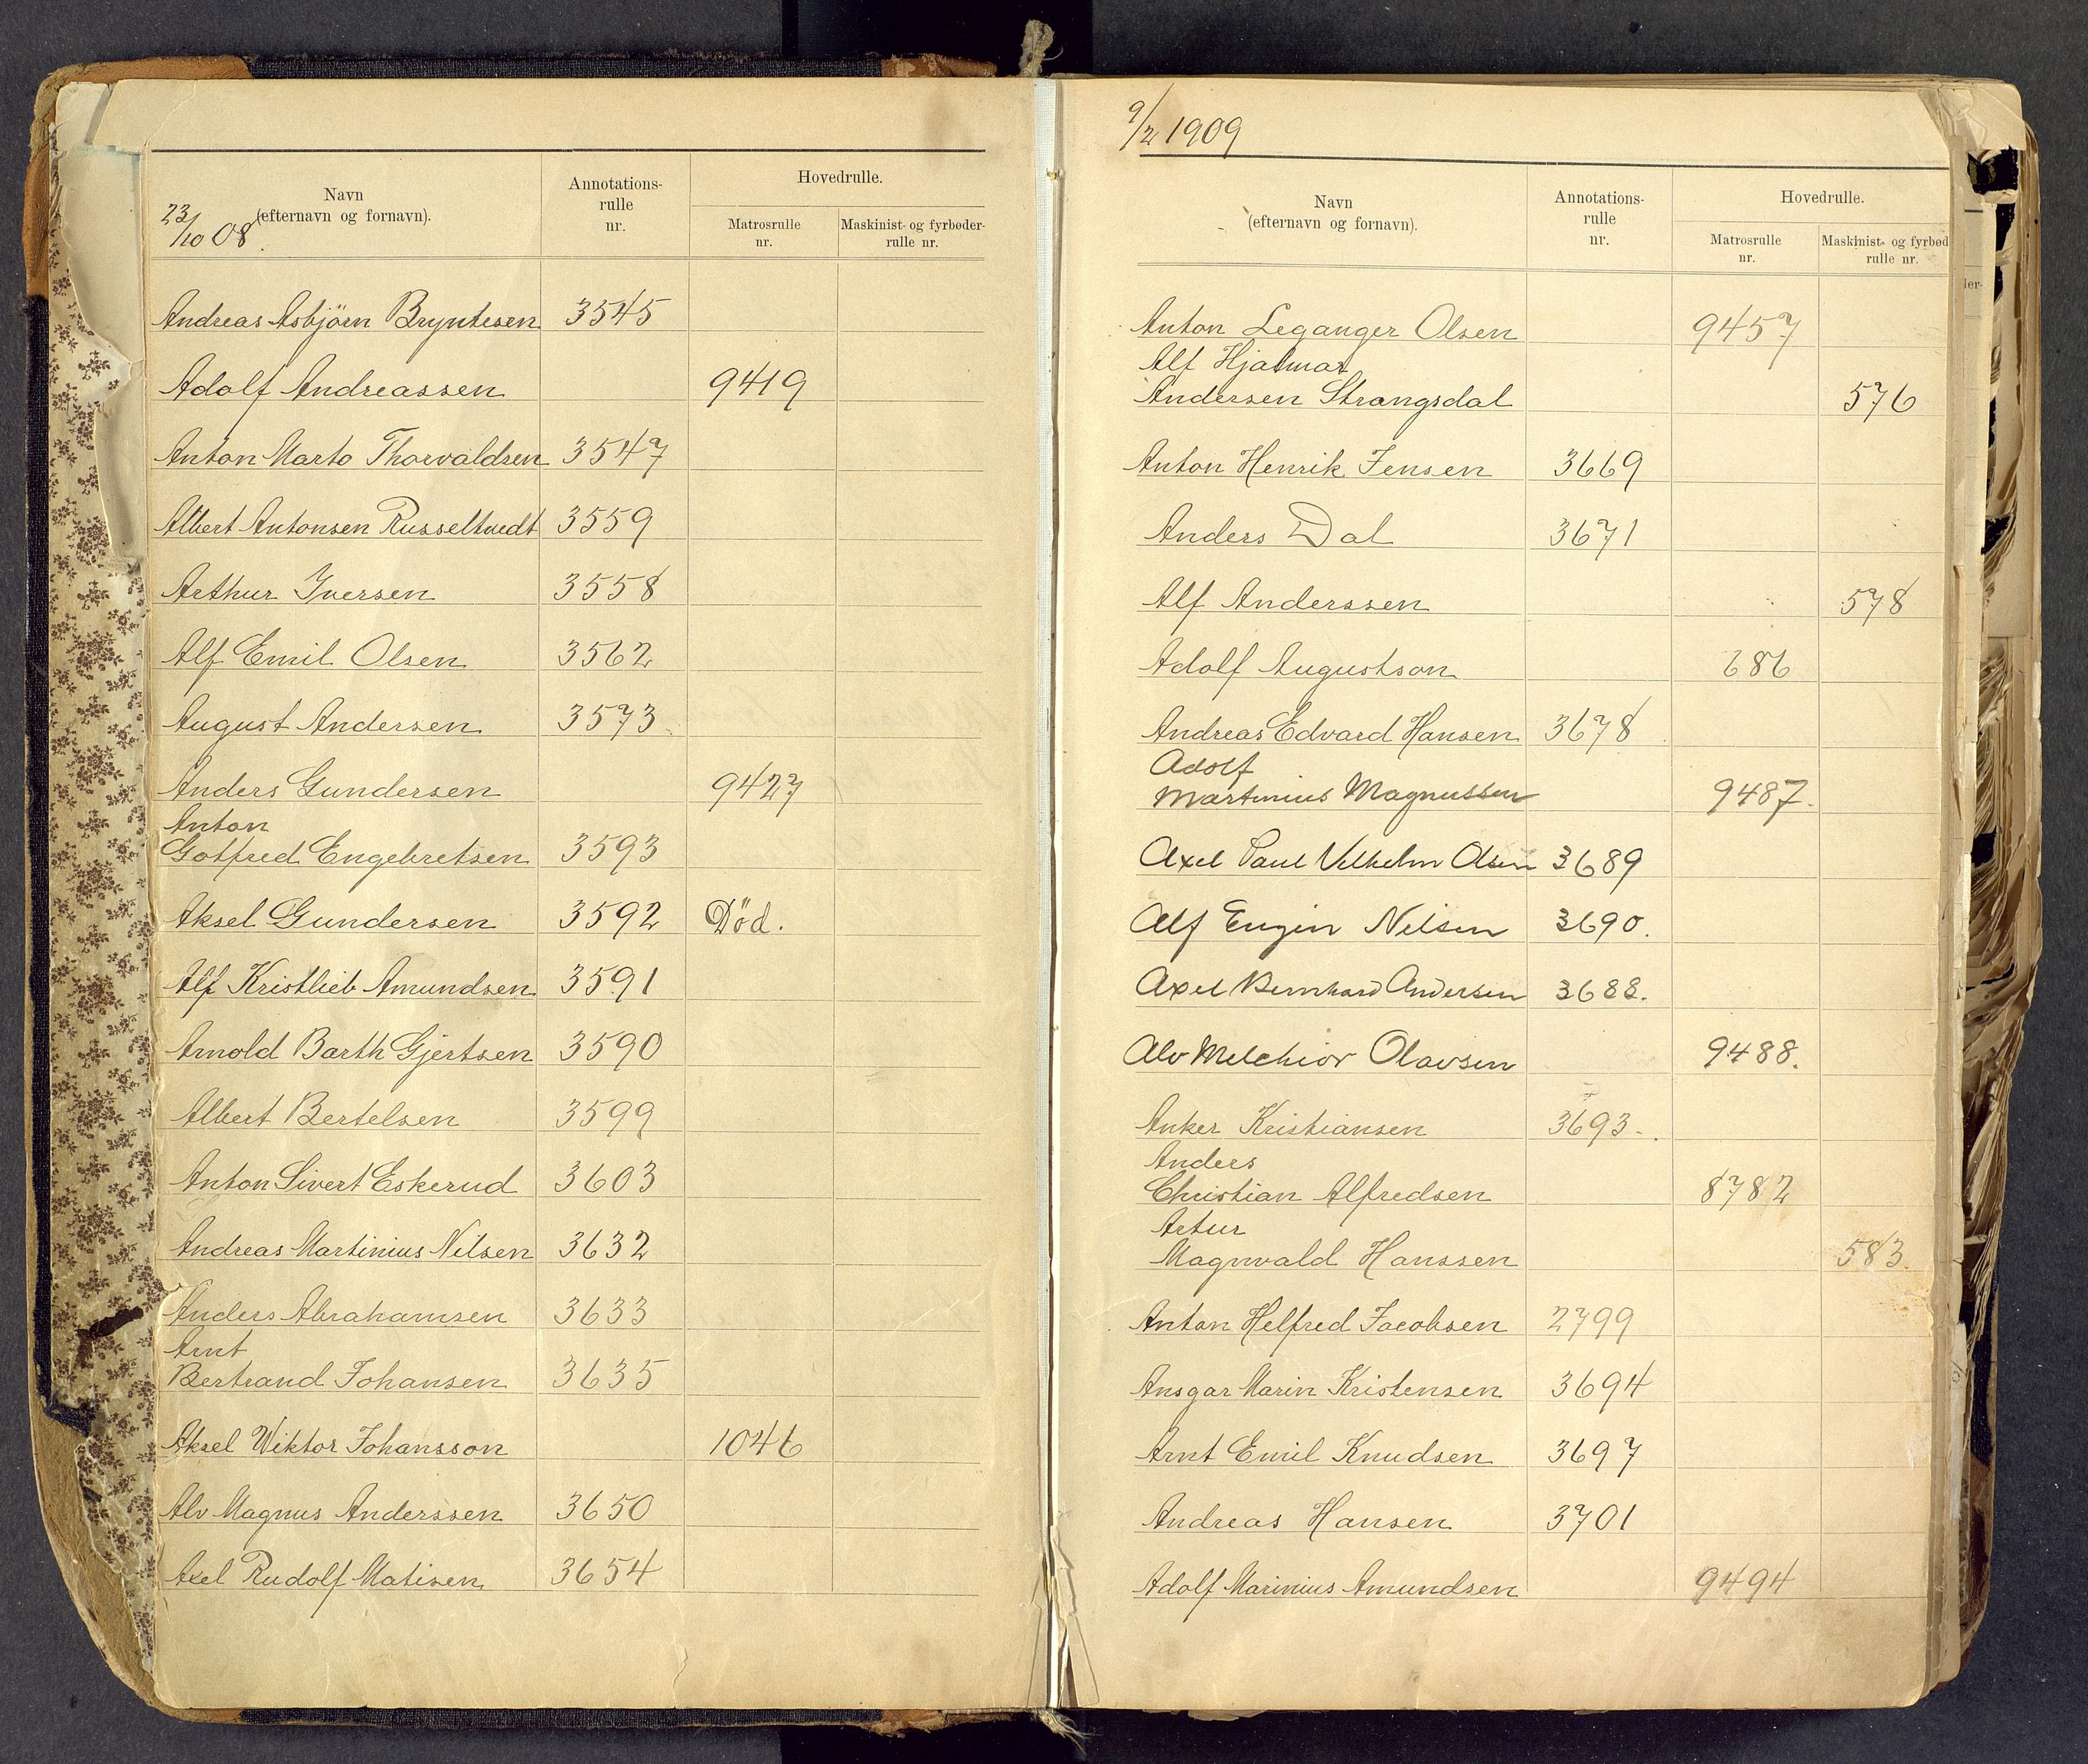 23/10 08.
Navn
(efternavn og fornavn).
Annotations-
rulle
nr.
Hovedrulle.
Matrosrulle
nr.
Maskinist- og fyrbøder-
rulle nr.
Andreas Asbjörn Bryntesen 3545
Adolf Andreassen 9419
Anton Marto Thorvaldsen 3547
Albert Antonsen Russeltvedt 3559
Arthur Iversen 3558
Alf Emil Olsen 3562
August Andersen 3573
Anders Gundersen 9427
Anton
Gotfred Engebretsen 3593
Aksel Gundersen 3592 Död.
Alf Kristlieb Amundsen 3591
Arnold Barth Gjertsen 3590
Albert Bertelsen 3599
Anton Sivert Eskerud 3603
Andreas Martinius Nilsen 3632
Anders Abrahamsen 3633
Arnt
Bertrand Johansen 3635
Aksel Wiktor Johansson 1046
Alv Magnus Anderssen 3650
Axel Rudolf Matisen 3654
9/2 1909
Navn
(efternavn og fornavn).
Annotations-
rulle
nr.
Hovedrulle.
Matrosrulle
nr.
Maskinist- og fyrbød
rulle nr.
Anton Leganger Olsen 9457
Alf Hjalmar
Andersen Strangsdal 576
Anton Henrik Jensen 3669
Anders Dal 3671
Alf Anderssen 578
Adolf Augustson 686
Andreas Edvard Hansen 3678
Adolf
Martinius Magnussen 9487.
Axel Paul Vilhelm Olsen 3689
Alf Eugin Nilsen 3690.
Axel Bernhard Andersen 3688.
Alv Melchior Olavsen 9488.
Anker Kristiansen 3693.
Anders
Christian Alfredsen 8782
Artur
Magnvald Hanssen 583.
Anton Helfred Jacobsen 2799
Ansgar Marin Kristensen 3694
Arnt Emil Knudsen 3697
Andreas Hansen 3701
Adolf Marinius Amundsen 9494